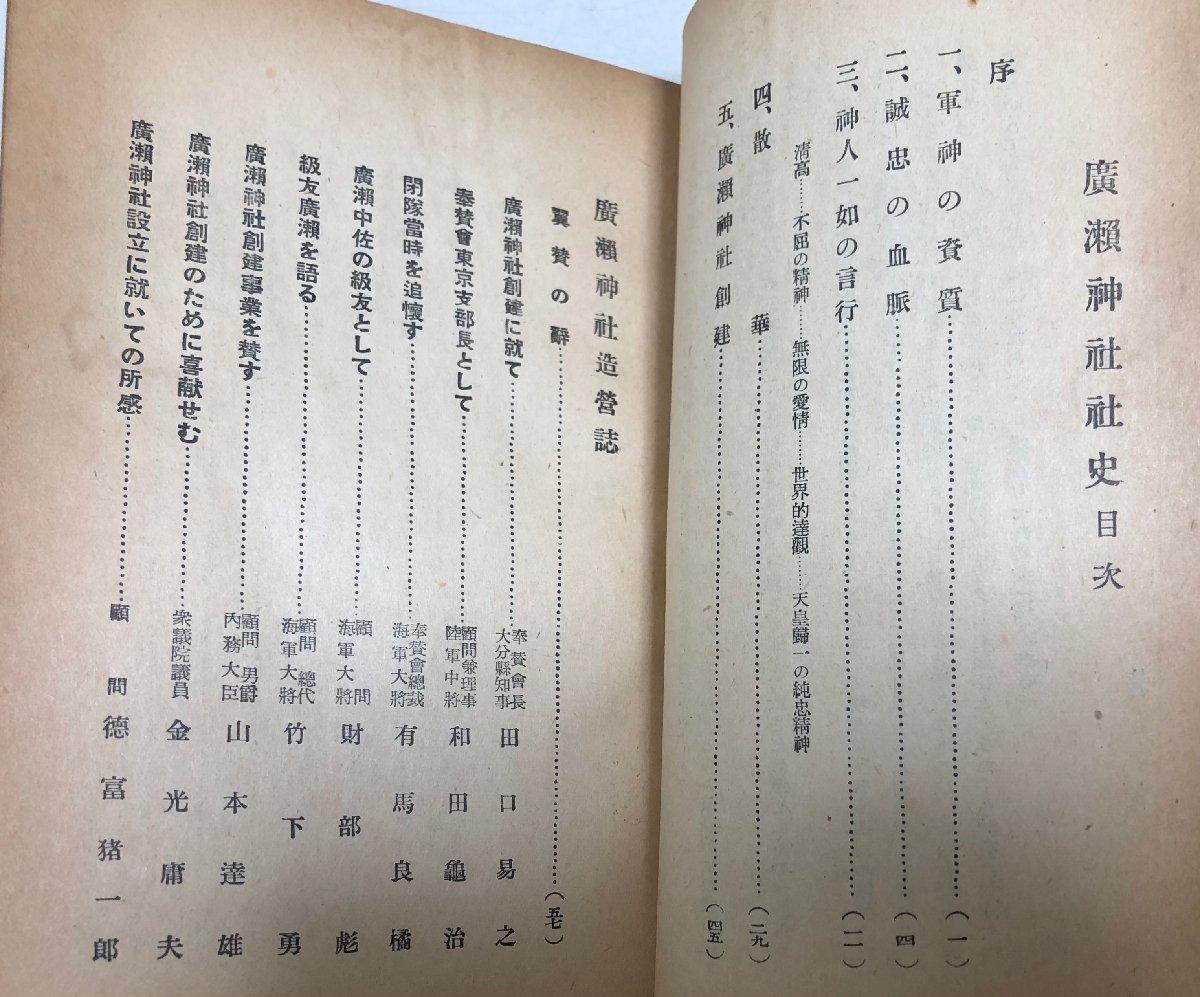 廣瀨神社社史目次
序
一、軍神の資質……………(一)
二、誠忠の血脈……………(四)
三、神人一如の言行……………(一一)
淸高……不屈の精神……無限の愛情……世界的達觀……天皇歸一の純忠精神
四、散華……………(二九)
五、廣瀨神社創建……………(四五)
廣瀨神社造營誌
翼賛の辭……………(五七)
廣瀨神社創建に就て……………奉賛會長 大分縣知事 田口易之
奉賛會東京支部長として……………顧問兼理事 陸軍中將 和田龜治
閉隊當時を追懷す……………奉賛會總裁 海軍大將 有馬良橘
廣瀨中佐の級友として……………顧問 海軍大將 財部彪
級友廣瀨を語る……………顧問總代 海軍大將 竹下勇
廣瀨神社創建事業を賛す……………顧問 男爵 內務大臣 山本達雄
廣瀨神社創建のために喜献せむ……………衆議院議員 金光庸夫
廣瀨神社設立に就いての所感……………顧問 德富猪一郎